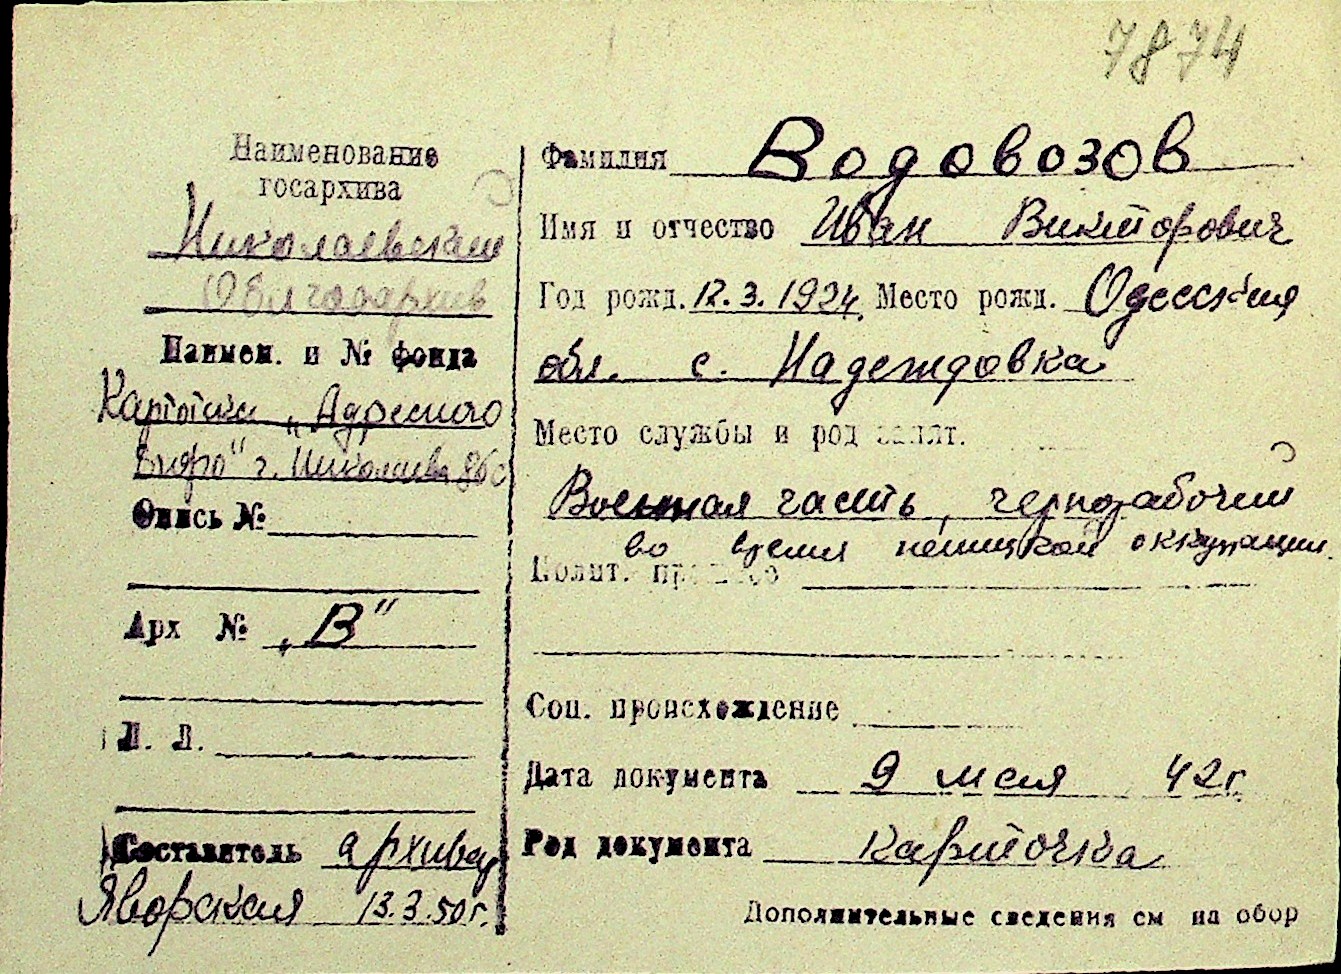 7874
Наименование
госархива
Николаевский
Облгосархив
Наимен. и № фонда
Картотека „Адресного
бюро" г. Николаева
Опись №
Арх № „В"
Л. Л.
Составитель архивар
Яворская 13.3.50г.
Фамилия Водовозов
Имя и отчество Иван Викторович
Год рожд. 12.3.1924 Место рожд. Одесская
обл. с. Надеждовка
Место службы и род занят.
Военная часть, чернорабочий
во время немецкой оккупации.
Полит. прошлое
Соц. происхождение
Дата документа 9 мая 42г.
Род документа карточка
Дополнительные сведения см на обор